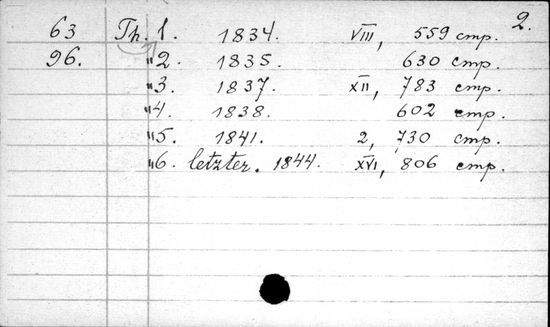 2.
63 Th. 1. 1834. VIII, 559 стр.
96. "2. 1835. 630 стр.
"3. 1837. XII, 783 стр.
"4. 1838. 602 стр.
"5. 1841. 2, 730 стр.
"6. letzter. 1844. XVI, 806 стр.